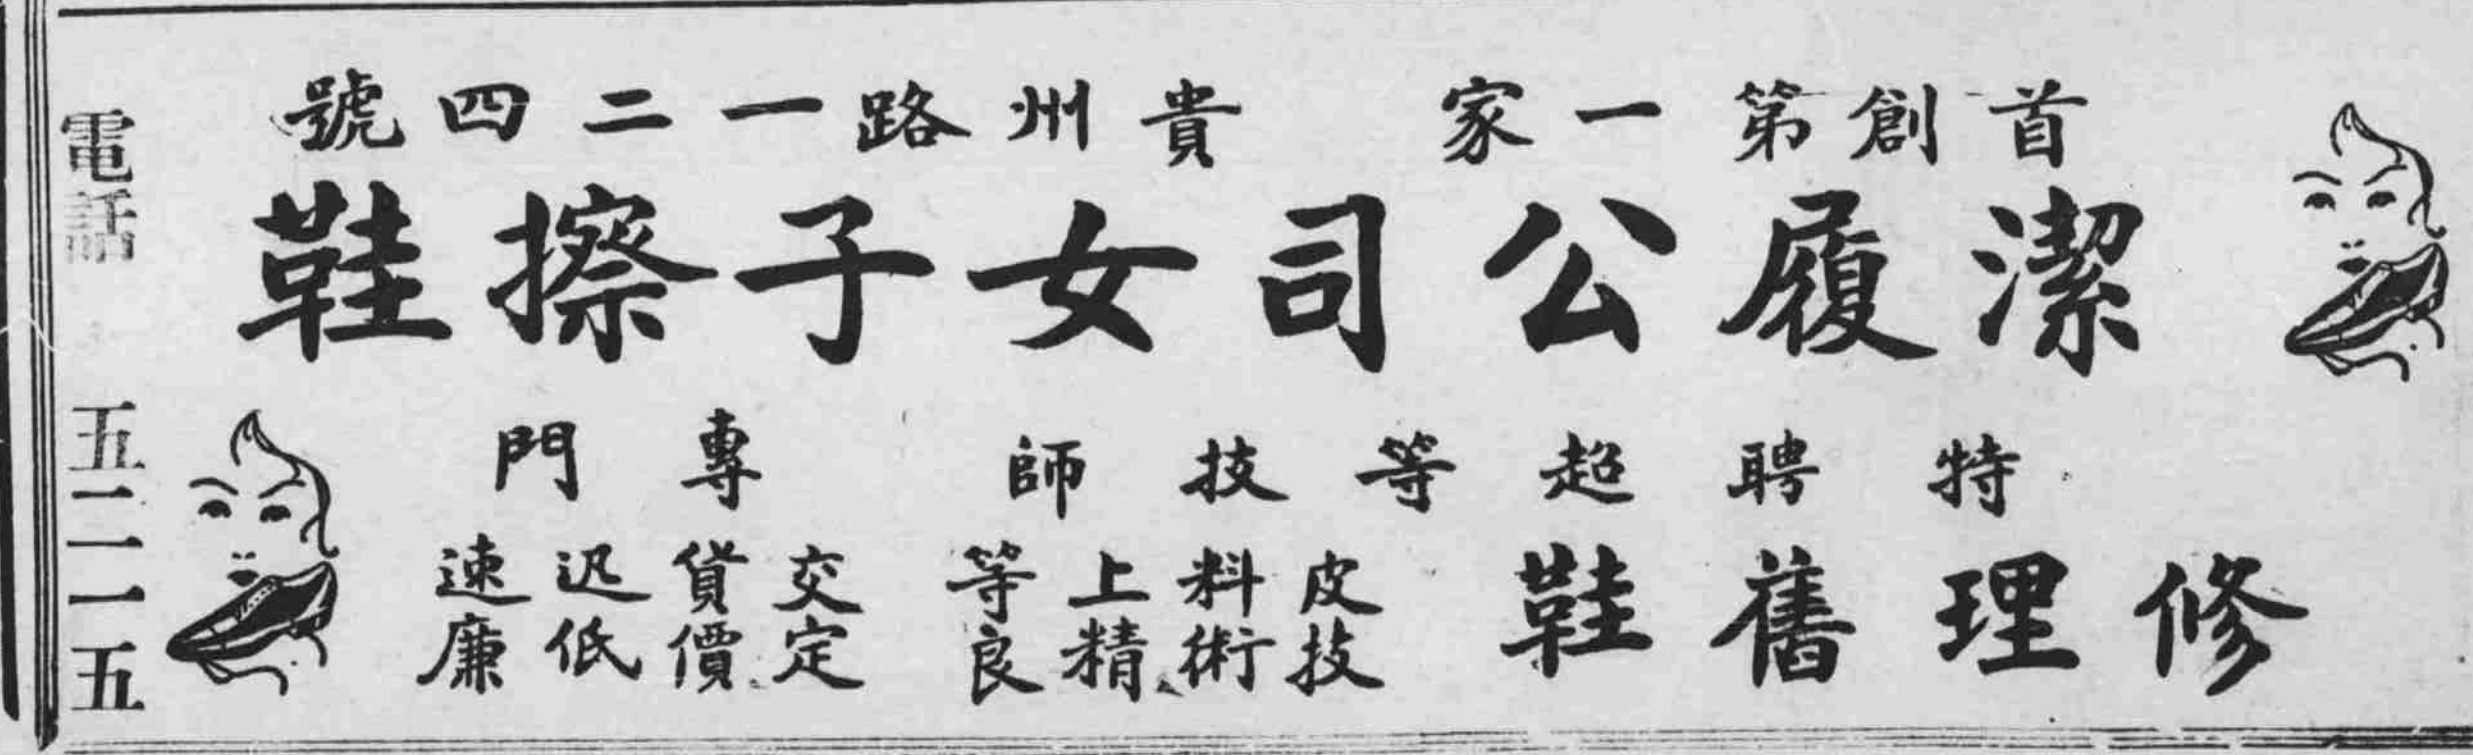 首創第一家 貴州路一二四號
潔履公司女子擦鞋
特聘超等技師 專門
修理舊鞋
皮料上等 交貨迅速
技術精良 定價低廉
電話 五二一一五